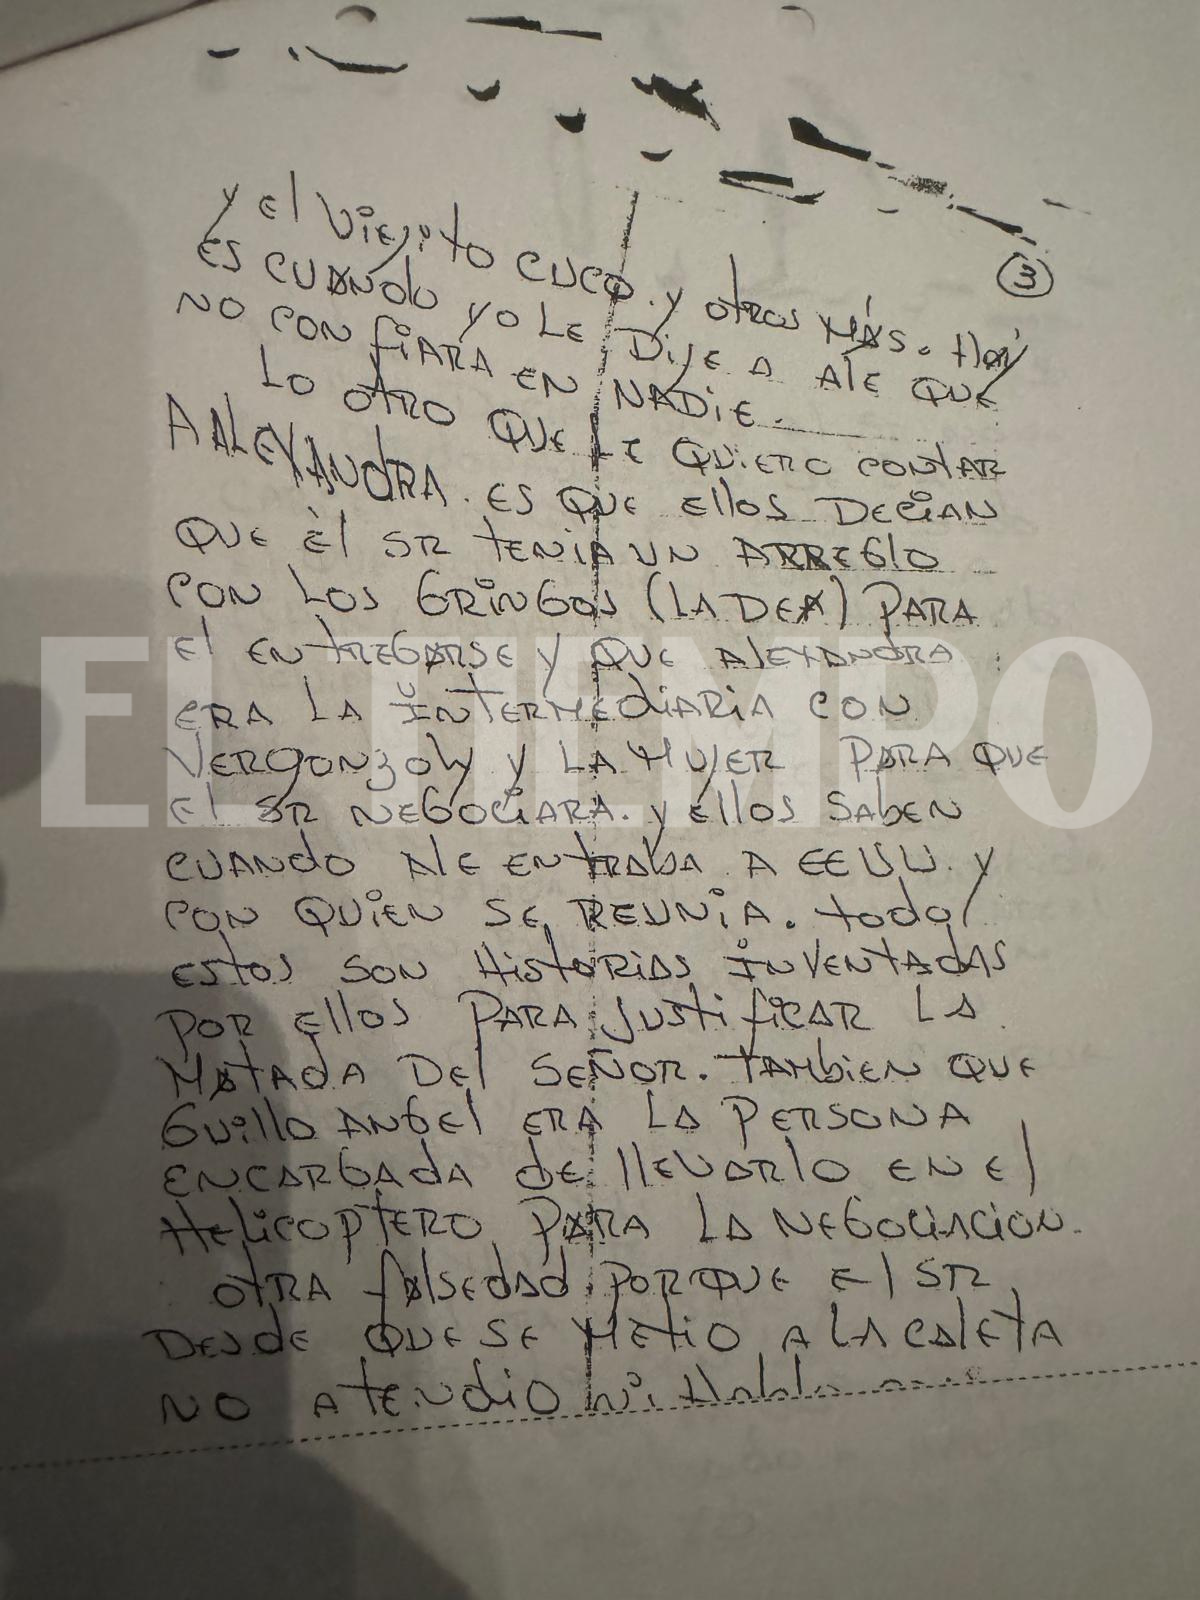 3
y el viejito cuco. y otros más. Hay
es cuando yo le dije a Ale que
no confiara en nadie.
Lo otro que le quiero contar
A ALEXANDRA. es que ellos decian
que èl SR tenia un arreglo
con los gringos (la DEA) para
el entregarse y que Alexandra
era la intermediaria con
Vergonzoly y la mujer para que
el SR negociara. y ellos saben
cuando Ale entraba a EEUU. y
con quien se reunia. todo
estos son historias inventadas
por ellos para justificar la
matada del Señor. tambien que
Guillo Angel era la persona
encargada de llevarlo en el
Helicoptero para la negociacion.
otra falsedad. porque el SR
desde que se metio a la caleta
no atendio ni
EL TIEMPO